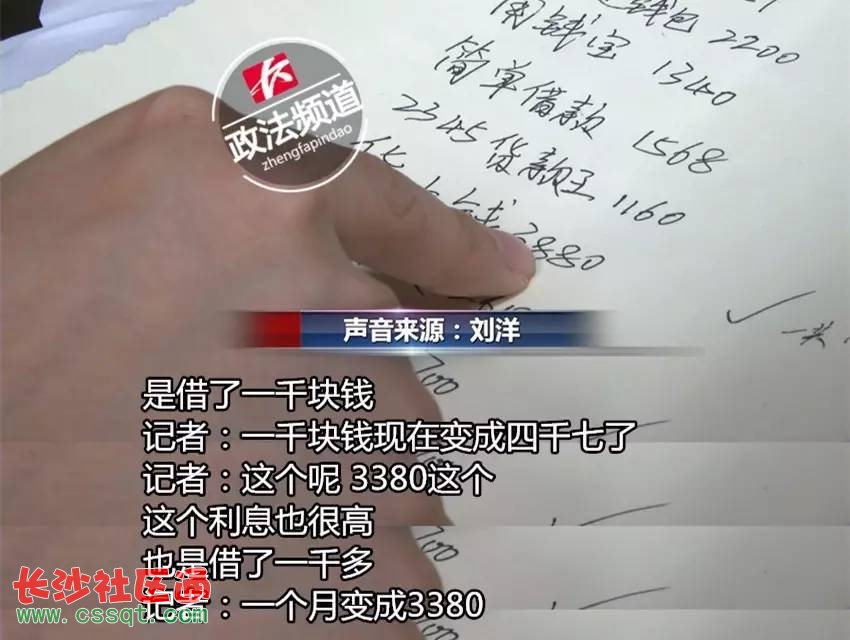 钱包 2200
用钱宝 1340
简单借款 1568
2345贷款王 1160
3880
700
700
政法频道
zhengfapindao
声音来源：刘洋
是借了一千块钱
记者：一千块钱现在变成四千七了
记者：这个呢 3380这个
这个利息也很高
也是借了一千多
记者：一个月变成3380
长沙社区通
www.cssqt.com